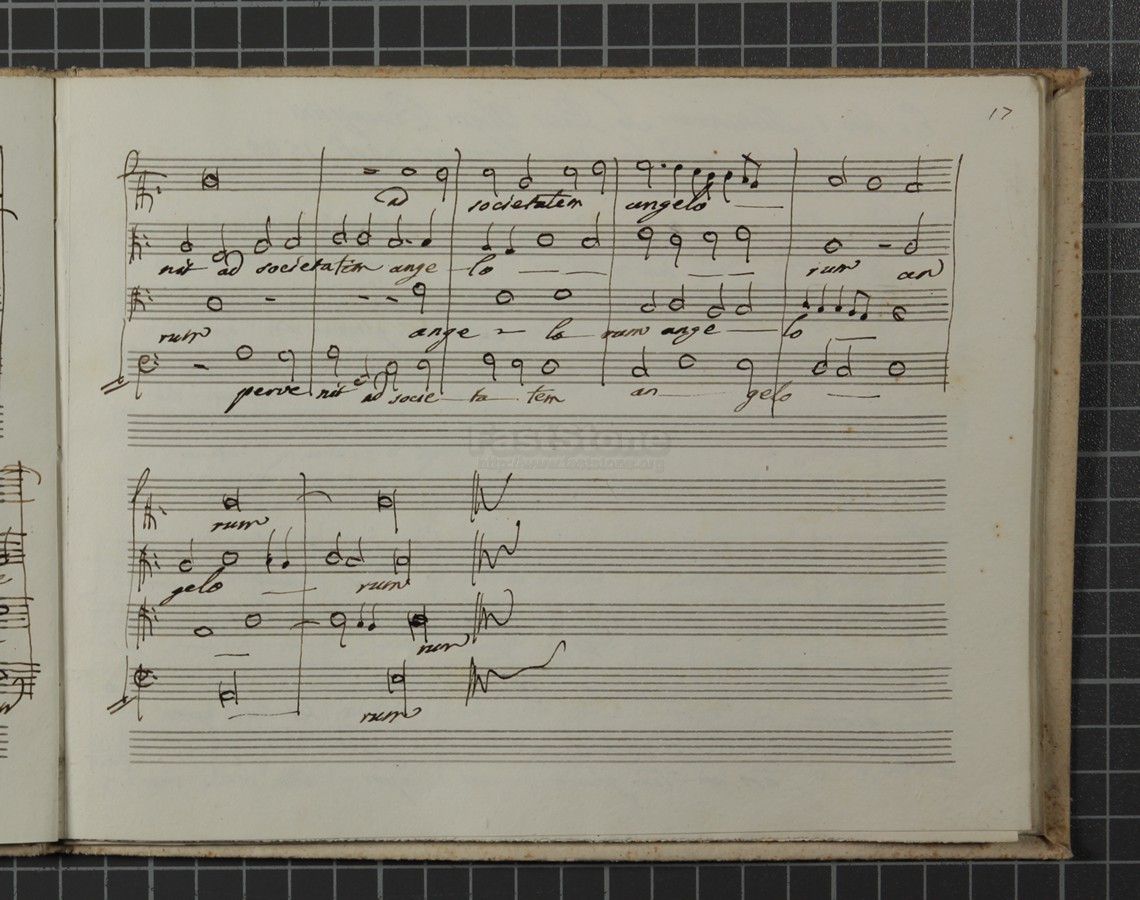 17
ad societatem angelo
nit ad societatem ange lo rum an
rum ange lo rum ange lo
perve nit ad socie ta tem an gelo
FastStone
http://www.faststone.org
rum
gelo rum
rum
rum